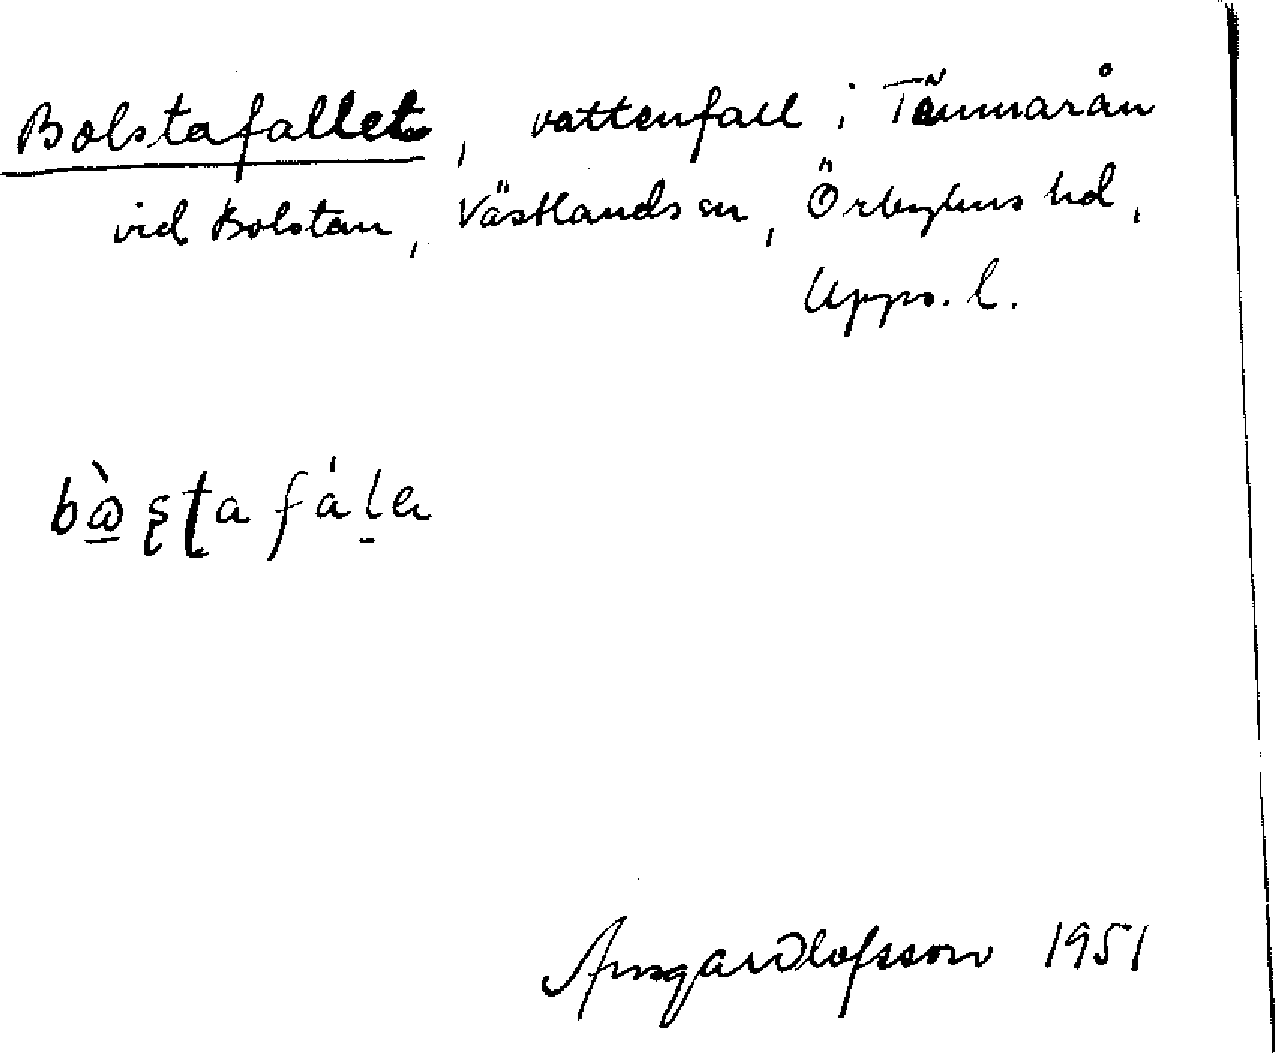 Bolstafallet, vattenfall i Tämnarån
vid Bolstan, Västlands sn, Örbyhus hd,
Upps. l.
Ansgar Olofsson 1951